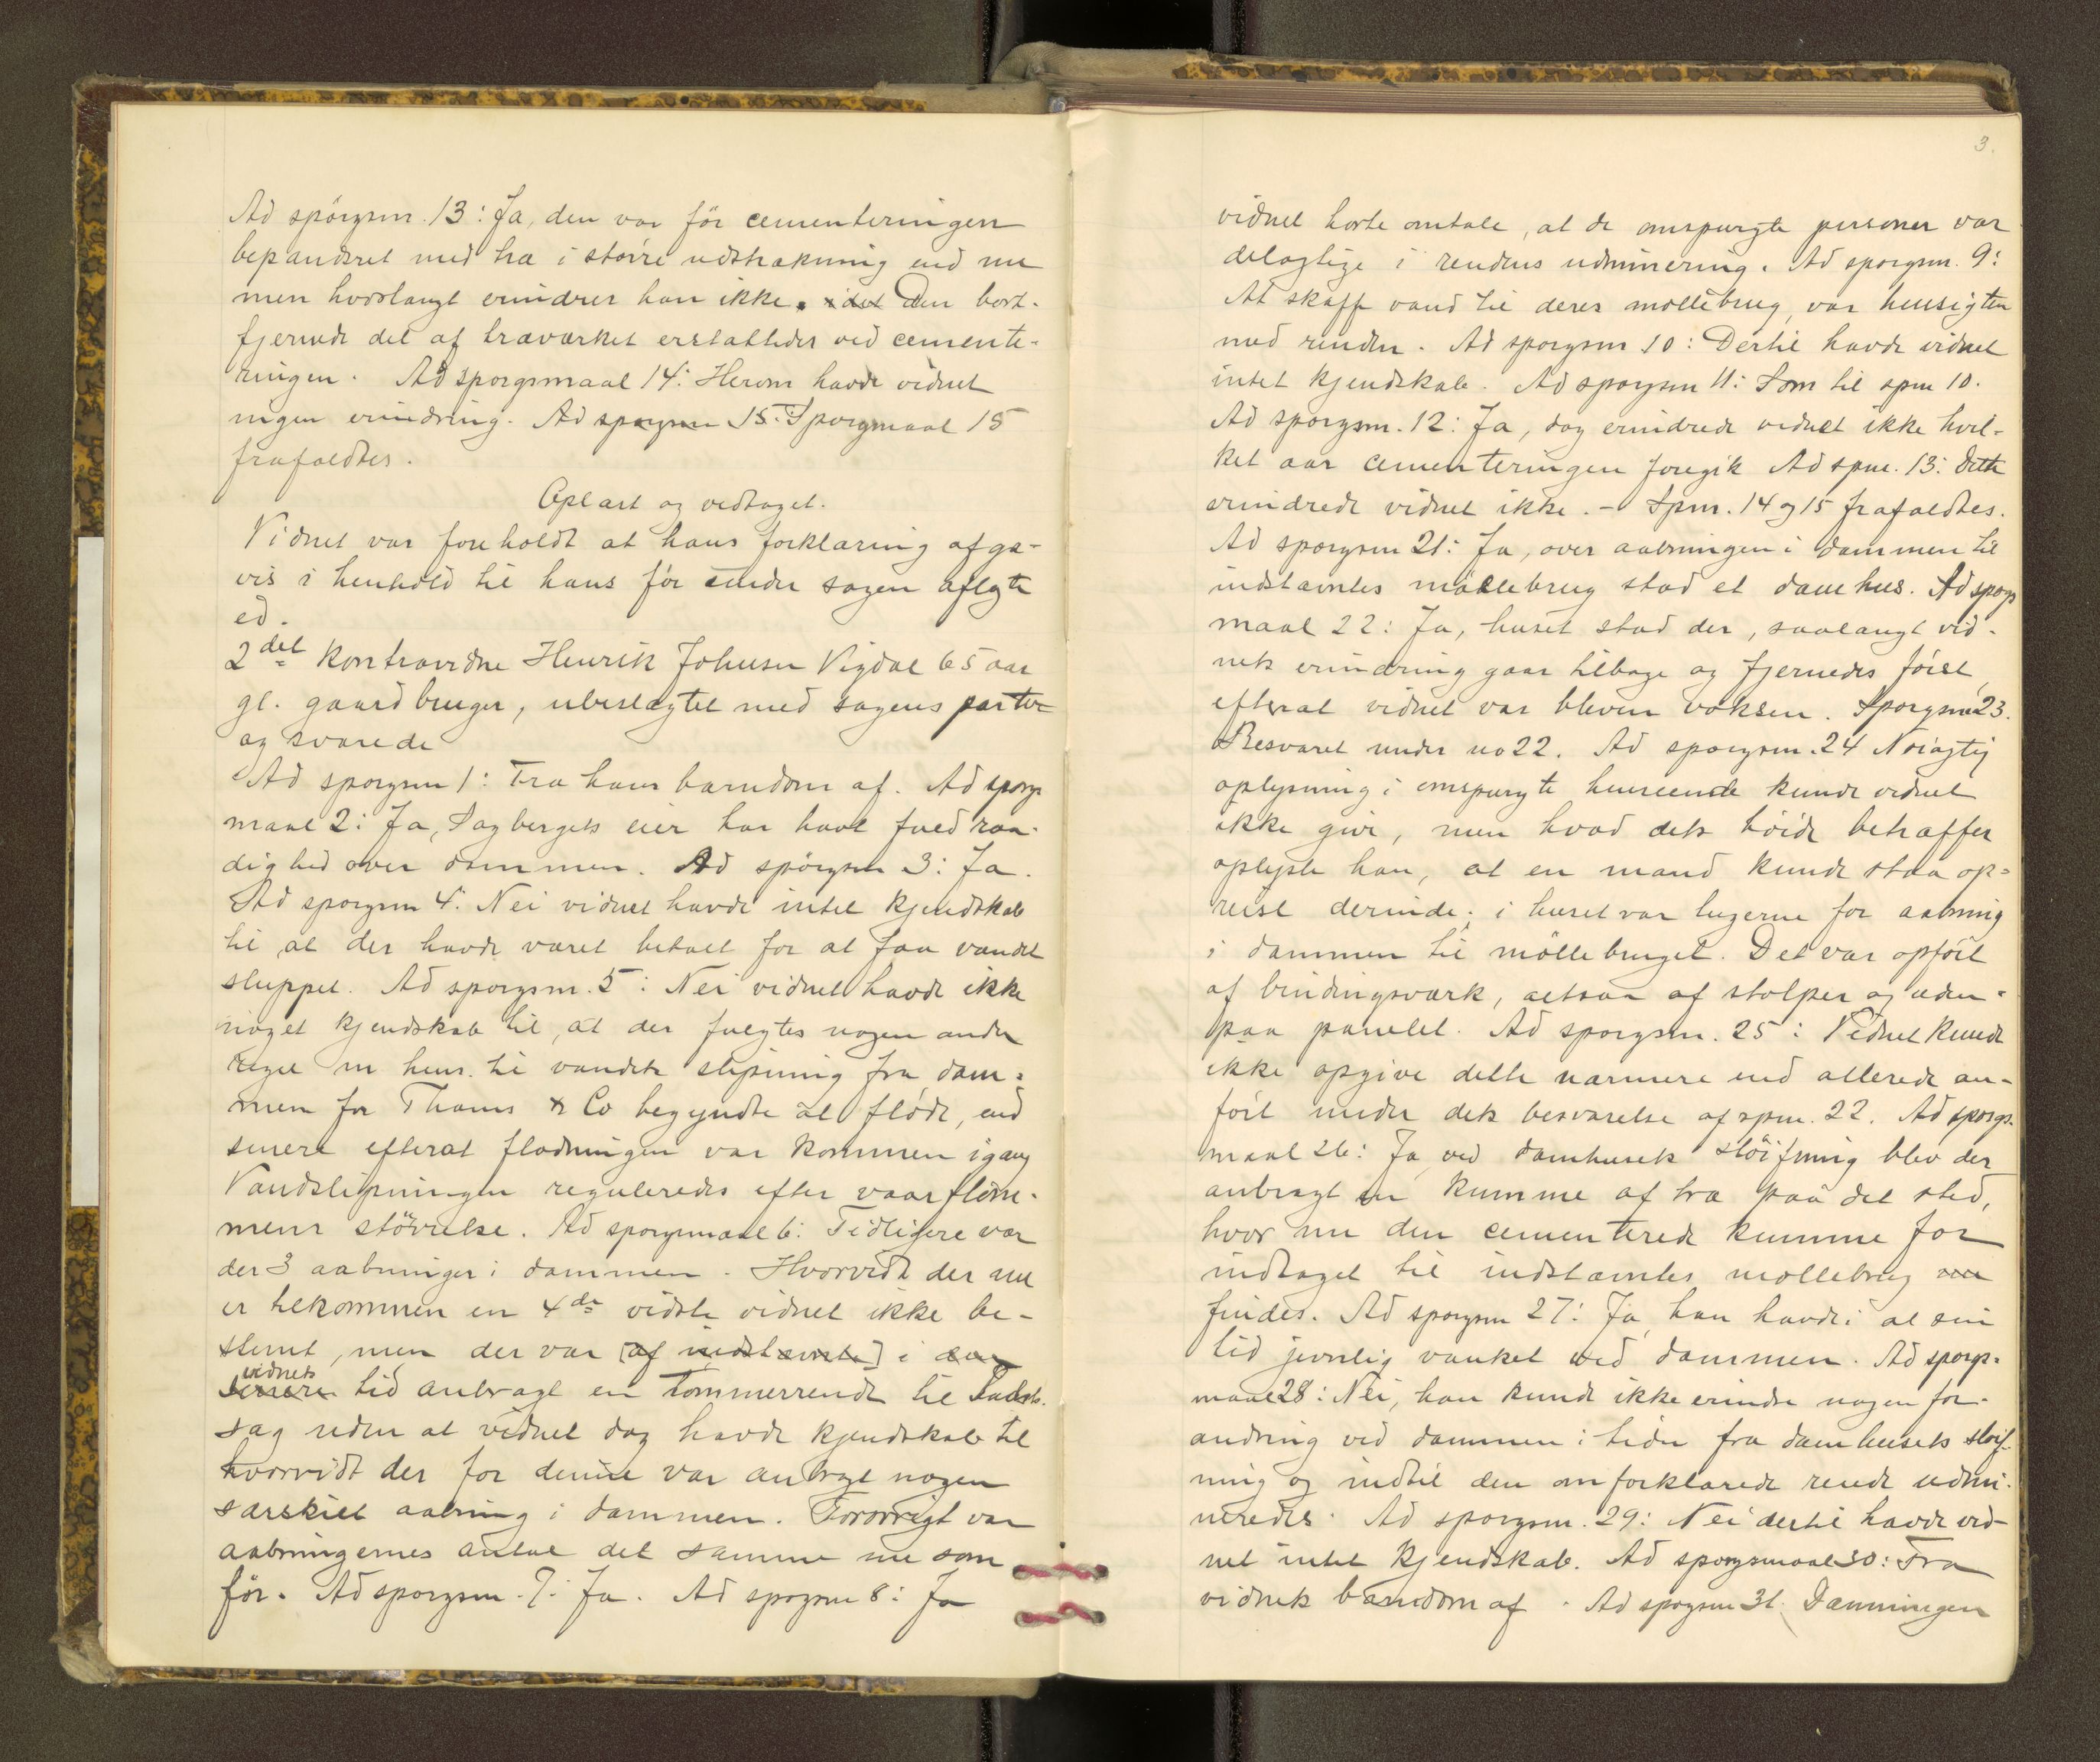 Ad spörgsm. 13: Ja, den var för cementeringen
bepandsret med træ i större udstrækning end nu
men hvorlangt erindrer han ikke. idet Den bort-
fjernede del af træværket erstattedes ved cemente-
ringen. Ad spörgsmaal 14: Herom havde vidnet
ingen erindring. Ad spörgsm 15: Spörgmaal 15
frafaldtes.
Oplæst og vedtaget.
Vidnet var foreholdt at hans forklaring afga-
vis i henhold til hans för under sagen aflagte
ed.
2det Kontravidne Henrik Johnsen Vigdal 65 aar
gl. gaardbruger, ubeslægtet med sagens parter
og svarede
Ad sporgsm 1: Fra hans barndom af. Ad sporgs
maal 2: Ja, Sagbergets eier har havt fuld raa-
dighed over dammen. Ad spörgsm 3: Ja.
Ad sporgsm 4: Nei vidnet havde intet kjendskab
til at der havde været betalt for at faa vandet
sluppet. Ad sporgsm. 5: Nei vidnet havde ikke
noget kjendskab til, at der fulgtes nogen anden
regel m hens. til vandets slipning fra dam-
men for Thams & Co begyndte at flöde, end
senere efterat flødningen var kommen igang
Vandslipningen reguleredes efter vaarflom-
mens störrelse. Ad sporgsmaal 6: Tidligere var
der 3 aabninger i dammen. Hvorvidt der nu
er tilkommen en 4de vidste vidnet ikke be-
stemt, men der var [af indstævnte] i den
vidnets
senere tid anbragt en tommerrende til
sag uden at vidnet dog havde kjendskab til
hvorvidt der for denne var anbragt nogen
særskilt aabning i dammen. Forövrigt var
aabningernes antal det samme nu som
för. Ad sporgsm. 7: Ja. Ad sporgsm 8: Ja
3.
vidnet hörte omtale, at de omspurgte personer var
delagtige i rendens udminering. Ad sporgsm. 9:
At skaffe vand til deres möllebrug, var hensigten
med renden. Ad sporgsm 10: Dertil havde vidnet
intet kjendskab. Ad sporgsm 11: Som til spm 10.
Ad sporgsm. 12: Ja, dog erindrede vidnet ikke hvil-
ket aar cementeringen foregik Ad spm. 13: Dette
erindrede vidnet ikke. - Spm. 14 og 15 frafaldtes.
Ad sporgsm 21: Ja, over aabningen i dammen til
indstævntes möllebrug stod et damhus. Ad sporgs
maal 22: Ja, huset stod der, saalangt vid-
nets erindring gaar tilbage og fjernedes först
efterat vidnet var bleven voksen. Sporgsm 23.
Besvaret under no 22. Ad sporgsm. 24 Nöiagtig
oplysning i omspurgte henseende kunde vidnet
ikke give, men hvad dets höide betræffer
oplyste han, at en mand kunde staa op-
reist derinde; i huset var lugerne for aabning
i dammen til möllebruget. Det var opfört
af bindingsværk, altsaa af stolper og uden-
paa panelet. Ad sporgsm. 25: Vidnet kunde
ikke opgive dette nærmere end allerede an-
fört under dets besvarelse af spm. 22. Ad sporgs-
maal 26: Ja, ved damhusets slöifning blev der
anbragt en kumme af træ paa det sted,
hvor nu den cementerede kumme for
indtaget til indstævntes möllebrug nu
findes. Ad sporgsm 27: Ja, han havde i al sin
tid jevnlig vanket ved dammen. Ad sporgs-
maal 28: Nei, han kunde ikke erindre nogen for-
andring ved dammen i tiden fra damhusets slöif-
ning og indtil den omforklarede rende udmi-
neredes. Ad sporgsm. 29: Nei dertil havde vid-
net intet kjendskab. Ad sporgsmaal 30: Fra
vidnets barndom af. Ad sporgsm 31. Dæmningen